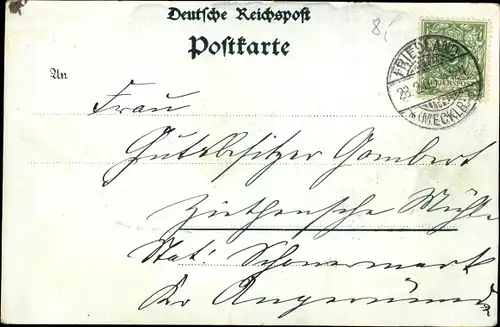 Deutsche Reichspost
Postkarte
8,
An
FRIEDLAND
(MECKLB.)
Frau
Gutsbesitzer Gombert
Ziethensche Mühle
Stat: Schönermark
Kr Angermünde